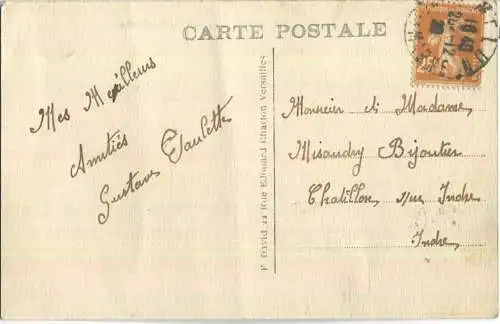 CARTE POSTALE
Mes Meilleurs
Amitiés
Gustave Paulette
P. David 44 Rue Edouard Charton Versailles
Monsieur et Madame
Misandry Bijoutier
Chatillon s/ur Indre
Indre